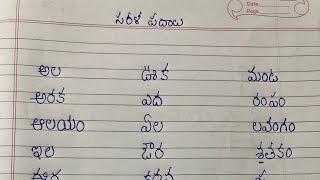 Date
Page
సరళ పదాలు
అల ఊక మంట
అరక ఎద రంపం
ఆలయం ఏల లవంగం
ఇల ఔర శతకం